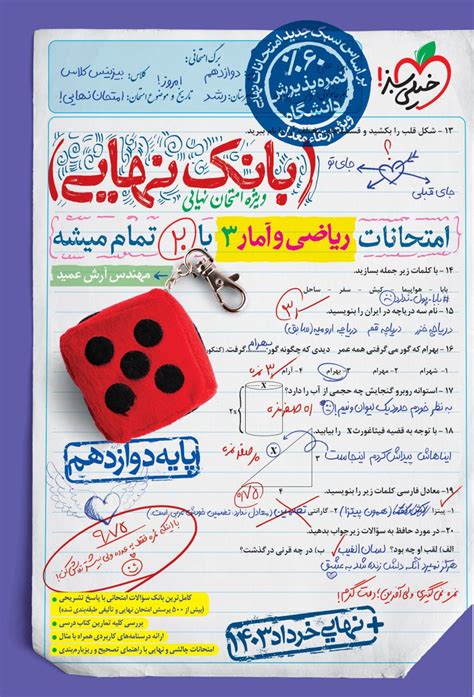 خیلی سبز!
براساس سبک جدید امتحانات نهایی
۶۰٪
نمره پذیرش
دانشگاه
ویژه ارتقاء معدل
برگ امتحانی:
دوازدهم
کلاس: بیزینس کلاس
امروز!
تاریخ و موضوع امتحان: امتحان نهایی!
۱۳ - شکل قلب را بکشید و
جای تو
جای قبلی
(بانک نهایی)
ویژه امتحان نهایی
امتحانات ریاضی و آمار ۳ با ۲۰ تمام میشه
مهندس آرش عمید
۱۴ - با کلمات زیر جمله بسازید.
بابا - هواپیما - کیش - سفر - ساحل
بابا پول ندارد
۱۵ - نام سه دریاچه در ایران را بنویسید.
دریاچه خزر دریاچه قم دریاچه ارومیه (سابق)
۱۶ - بهرام که گور می گرفتی همه عمر دیدی که چگونه گور بهرام گرفت.
۳ - بهرام ۴ - آرام
۱۷ - استوانه روبرو گنجایش چه حجمی از آب را دارد؟
به نظر خودم حدود یک لیوان و نیم!
X
2x
۱۸ - با توجه به قضیه فیثاغورث X را بیابید.
ایناهاش پیداش کردم اینجاست
X
۳
۴
۱۹ - معادل فارسی کلمات زیر را بنویسید.
۱ - پیتزا (همون پیتزا) ۲ - گارانتی تضمین
۲۰ - در مورد حافظ به سؤالات زیر جواب بدهید.
الف) لقب او چه بود؟ لسان الغیب ب) در چه قرنی درگذشت؟
هرگز نمیرد آنکه دلش زنده شد به عشق
پایه دوازدهم
۹/۷۵
نمره نمی گیری ولی آفرین! درستت کردم!
کامل‌ترین بانک سؤالات امتحانی با پاسخ تشریحی
(بیش از ۵۰۰ پرسش امتحان نهایی و تألیفی طبقه‌بندی شده)
بررسی کلیه تمارین کتاب درسی
ارائه درسنامه‌های کاربردی همراه با مثال
امتحانات چالشی و نهایی با راهنمای تصحیح و ریزبارم‌بندی
+ نهایی خرداد ۱۴۰۳